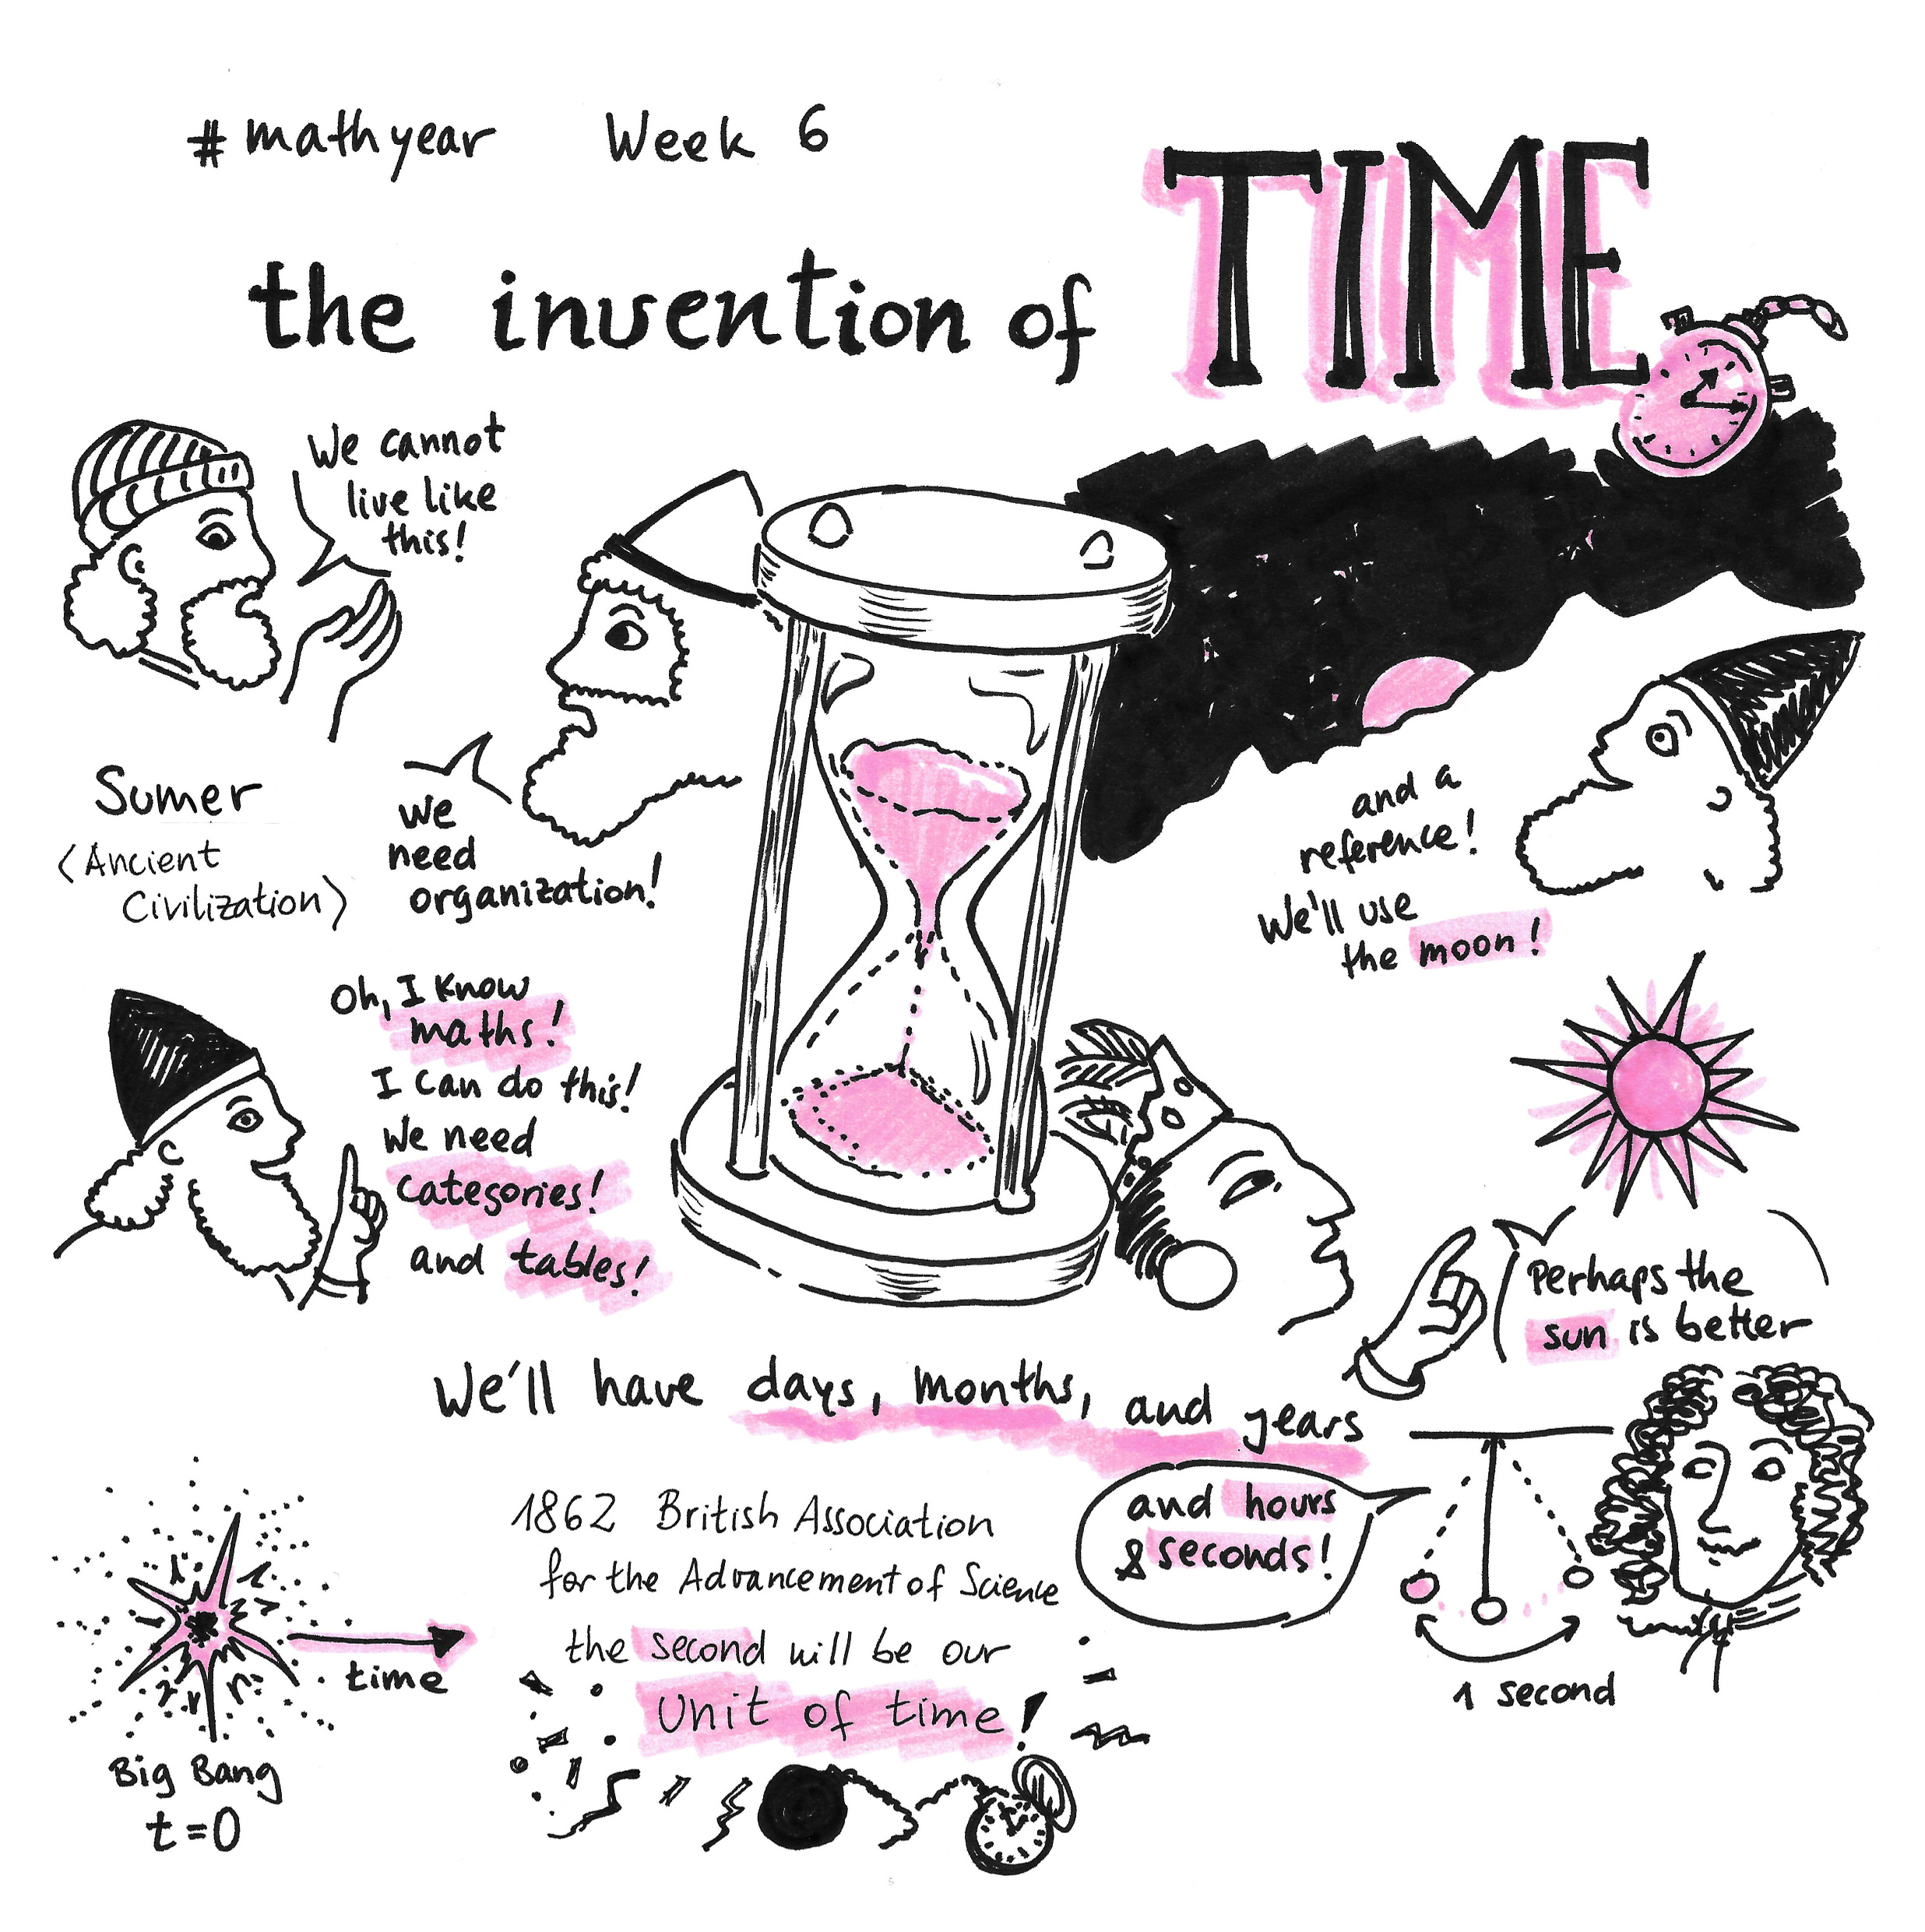 #mathyear Week 6
the invention of TIME
We cannot
live like
this!
Sumer
(Ancient
Civilization)
We
need
organization!
Oh, I know
maths!
I can do this!
We need
categories!
and tables!
and a
reference!
We'll use
the moon!
Perhaps the
sun is better
We'll have days, months, and years
and hours
& seconds!
1 second
1862 British Association
for the Advancement of Science
the second will be our
Unit of time!
time
Big Bang
t=0